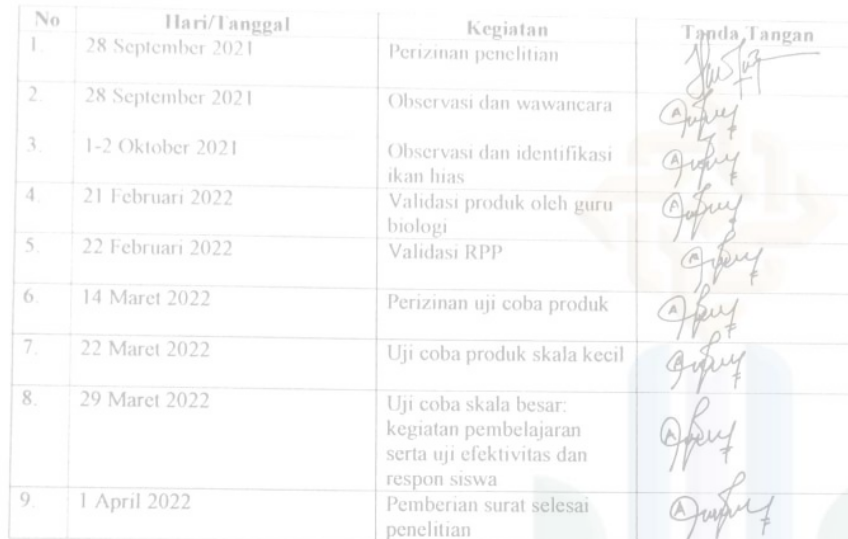 No Hari/Tanggal Kegiatan Tanda Tangan
1. 28 September 2021 Perizinan penelitian
2. 28 September 2021 Observasi dan wawancara
3. 1-2 Oktober 2021 Observasi dan identifikasi
ikan hias
4. 21 Februari 2022 Validasi produk oleh guru
biologi
5. 22 Februari 2022 Validasi RPP
6. 14 Maret 2022 Perizinan uji coba produk
7. 22 Maret 2022 Uji coba produk skala kecil
8. 29 Maret 2022 Uji coba skala besar:
kegiatan pembelajaran
serta uji efektivitas dan
respon siswa
9. 1 April 2022 Pemberian surat selesai
penelitian